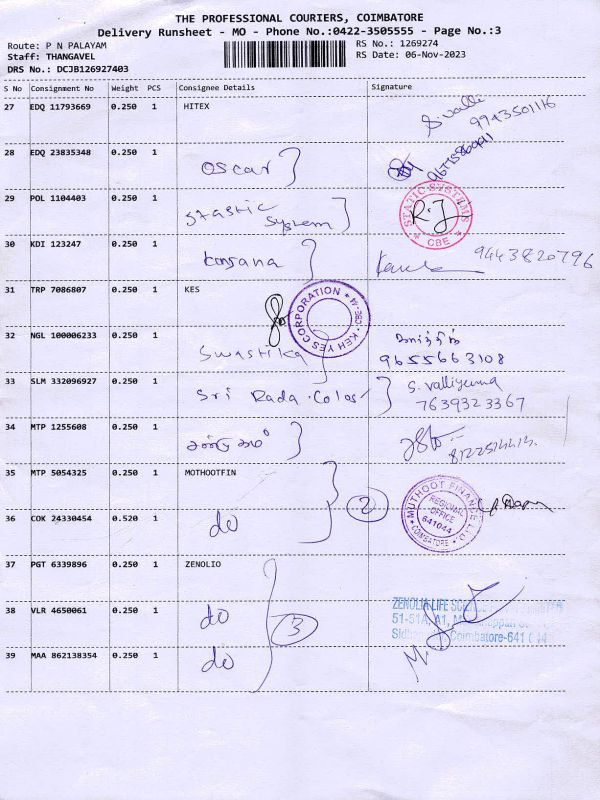 THE PROFESSIONAL COURIERS, COIMBATORE
Delivery Runsheet - MO - Phone No.:0422-3505555 - Page No.:3
Route: P N PALAYAM
RS No.: 1269274
Staff: THANGAVEL
RS Date: 06-Nov-2023
DRS No.: DCJB126927403
S No Consignment No Weight PCS Consignee Details Signature
27 EDQ 11793669 0.250 1 HITEX
S. valli
9943501116
28 EDQ 23835348 0.250 1 Oscar
29 POL 1104403 0.250 1 Stastic System
STATIC SYSTEMS CBE
R.J
30 KDI 123247 0.250 1
9443820796
31 TRP 7086807 0.250 1 KES
KEH YES CORPORATION CBE-44
32 NGL 100006233 0.250 1 Swastika
9655663108
33 SLM 332096927 0.250 1 Sri Rada Colos
S. Valliyamma
7639323367
34 MTP 1255608 0.250 1
35 MTP 5054325 0.250 1 MOTHOOTFIN
2
MUTHOOT FINANCE LTD.
REGIONAL OFFICE
641044
COIMBATORE
36 COK 24330454 0.520 1 do
37 PGT 6339896 0.250 1 ZENOLIO
38 VLR 4650061 0.250 1 do
3
ZENOLIA LIFE
51-51A, A1,
Coimbatore-641 044
39 MAA 862138354 0.250 1 do
M.